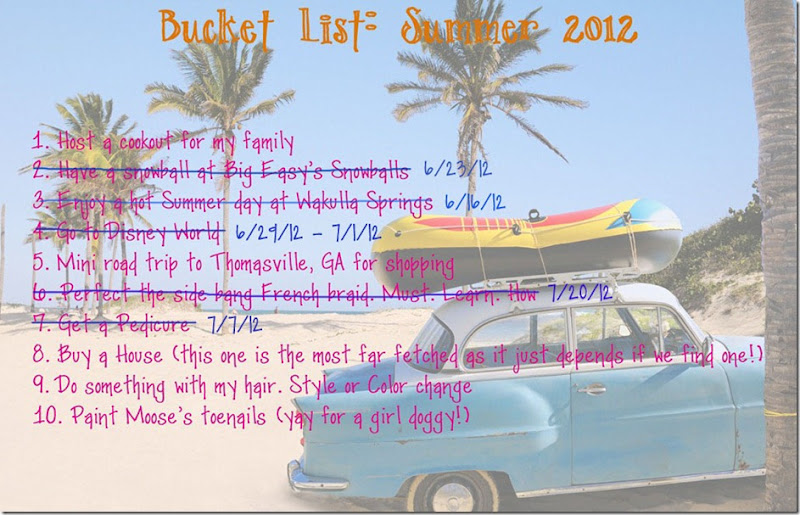 Bucket List: Summer 2012
1. Host a cookout for my family
2. Have a snowball at Big Easy's Snowballs 6/23/12
3. Enjoy a hot Summer day at Wakulla Springs 6/16/12
4. Go to Disney World 6/29/12 - 7/1/12
5. Mini road trip to Thomasville, GA for shopping
6. Perfect the side bang French braid. Must. Learn. How 7/20/12
7. Get a Pedicure 7/7/12
8. Buy a House (this one is the most far fetched as it just depends if we find one!)
9. Do something with my hair. Style or Color change
10. Paint Moose's toenails (yay for a girl doggy!)